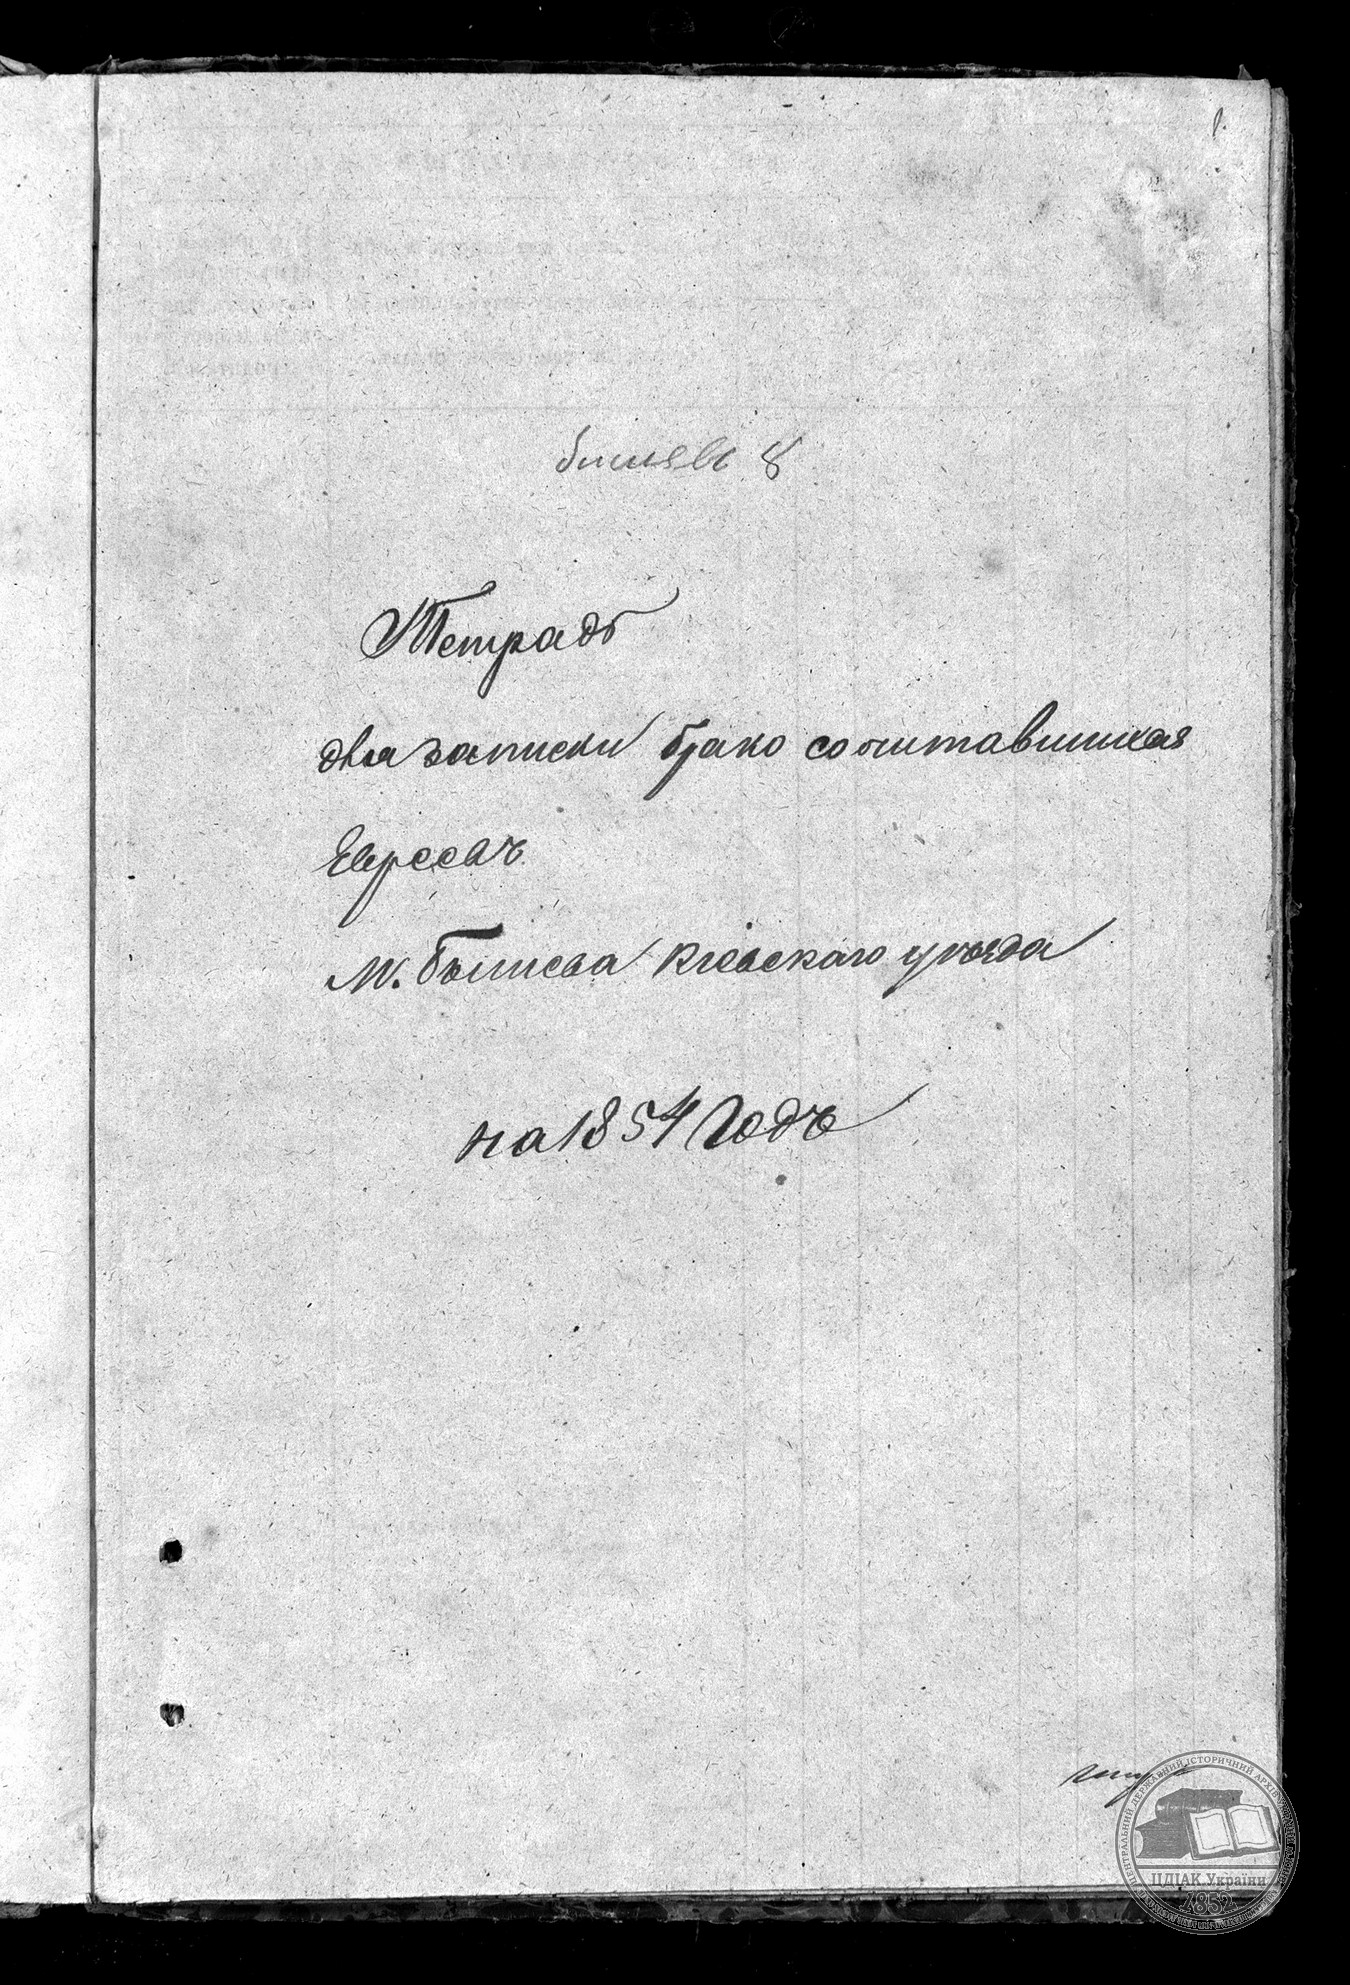 1.
бишевъ 8
Тетрадь
для записки брако сочитавшихся
Евреевъ
М. Бышева Кіевскаго уѣзда
на 1854 Годъ
ЦЕНТРАЛЬНИЙ ДЕРЖАВНИЙ ІСТОРИЧНИЙ АРХІВ
ЦДІАК України
1852